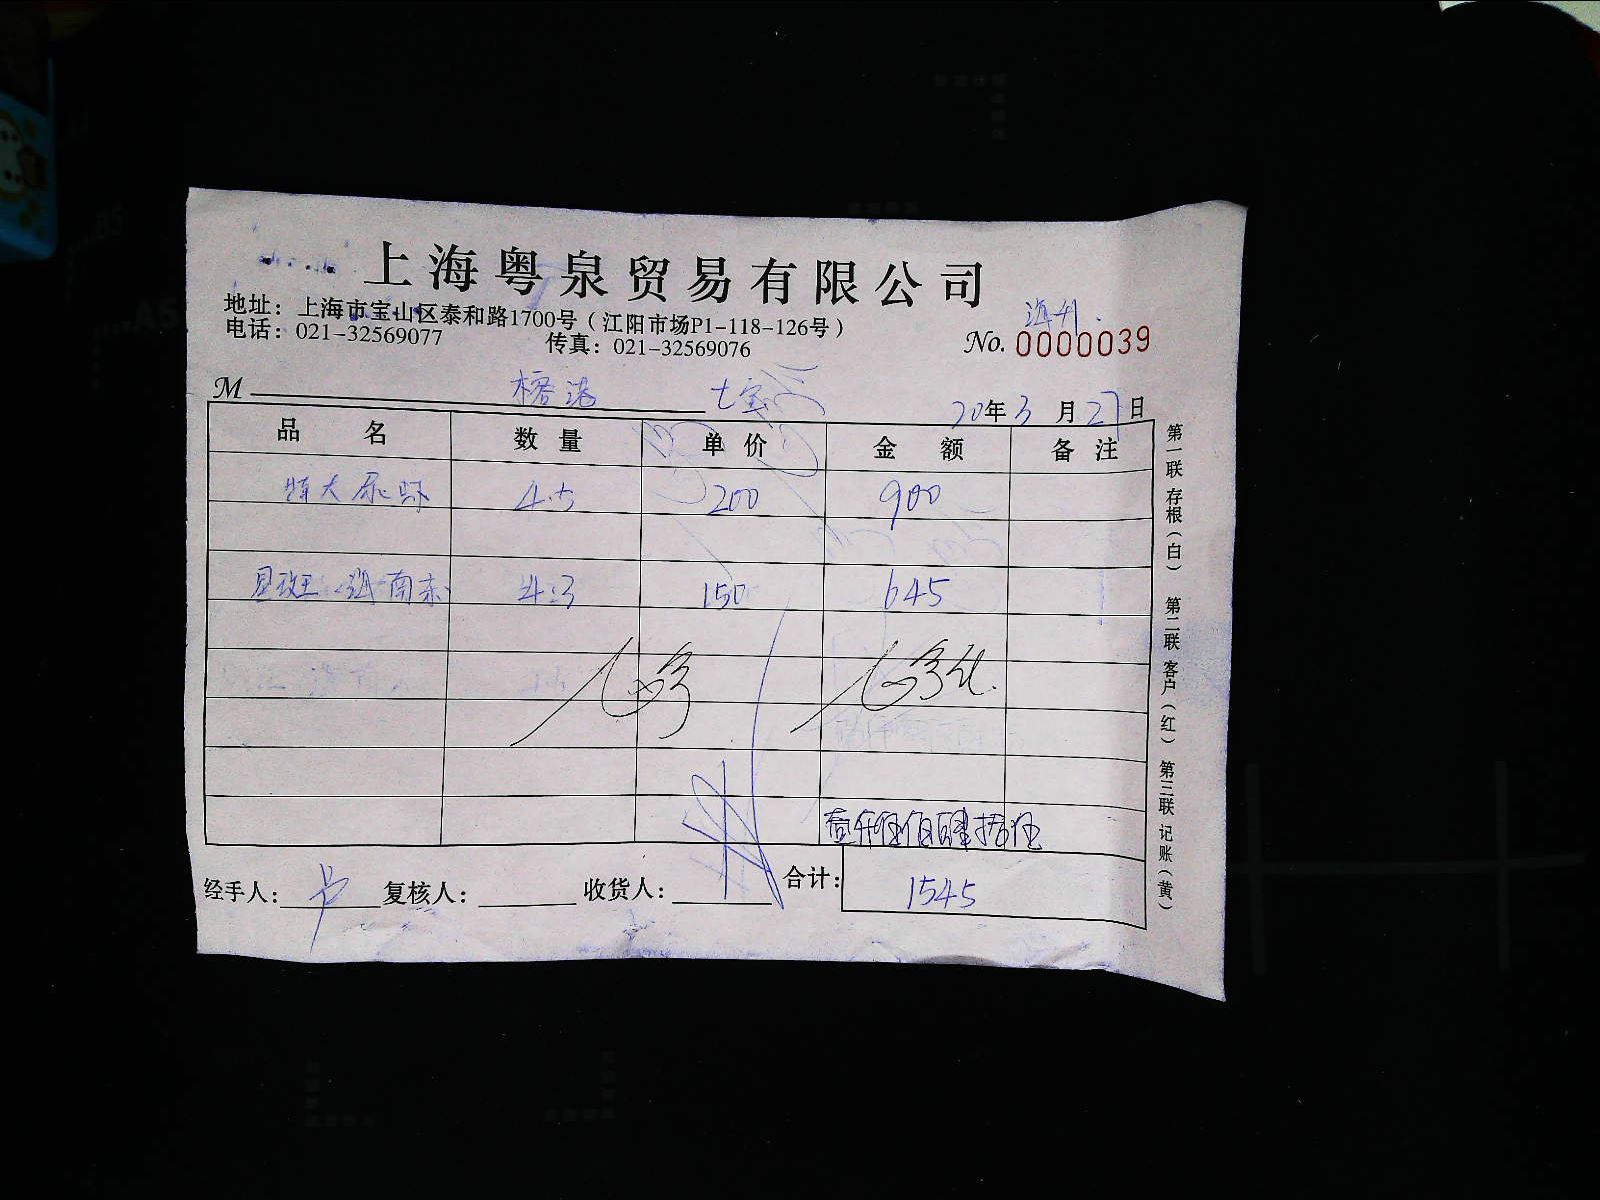 上海粤泉贸易有限公司
地址：上海市宝山区泰和路1700号（江阳市场P1-118-126号）
电话：021-32569077 传真：021-32569076
No. 0000039
M 榕港 七宝
20年3月27日
品名 数量 单价 金额 备注
特大尿虾 4.5 200 900
星斑 海南东 4.3 150 645
壹仟伍佰肆拾伍
经手人： 复核人： 收货人： 合计： 1545
第一联 存根（白） 第二联 客户（红） 第三联 记账（黄）